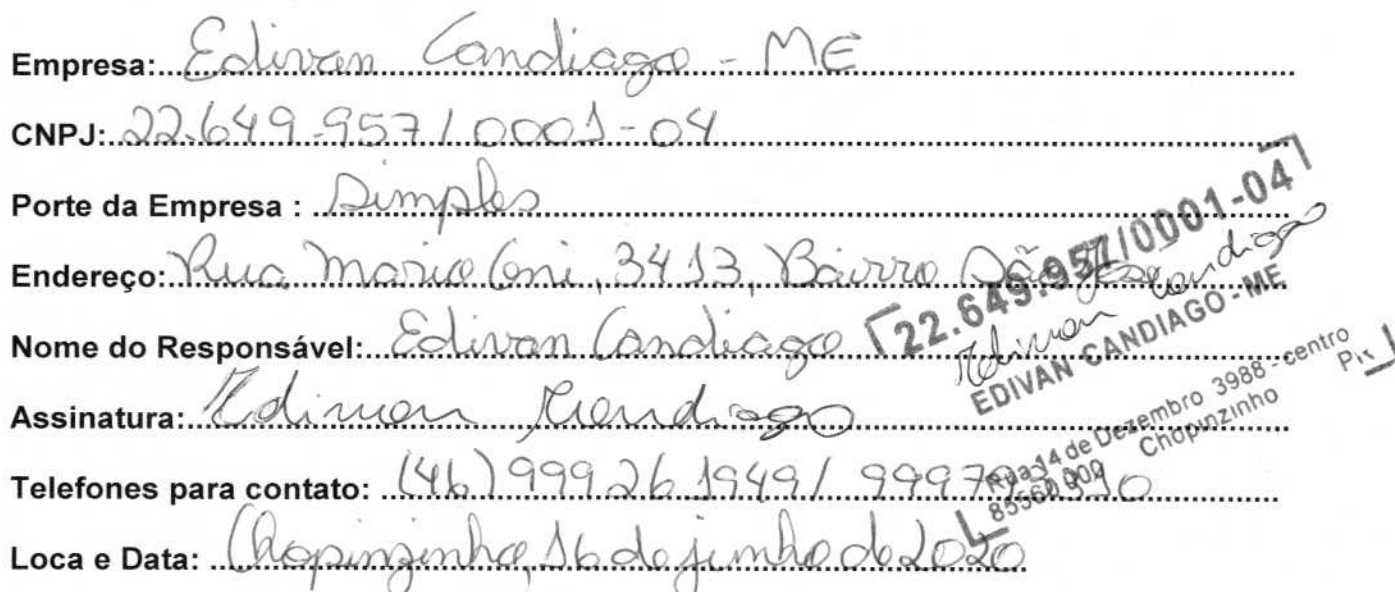 Empresa: Edivan Candiago - ME
CNPJ: 22.649.957/0001-04
Porte da Empresa : Simples
Endereço: Rua Mario Coni, 3413, Bairro São José
Nome do Responsável: Edivan Candiago
Assinatura: Edivan Candiago
Telefones para contato: (46) 99926 1949 /
Loca e Data: Chopinzinho, 16 de junho de 2020
22.649.957/0001-04
Edivan Candiago
EDIVAN CANDIAGO - ME
Rua 14 de Dezembro 3988 - centro
85560 000 Chopinzinho